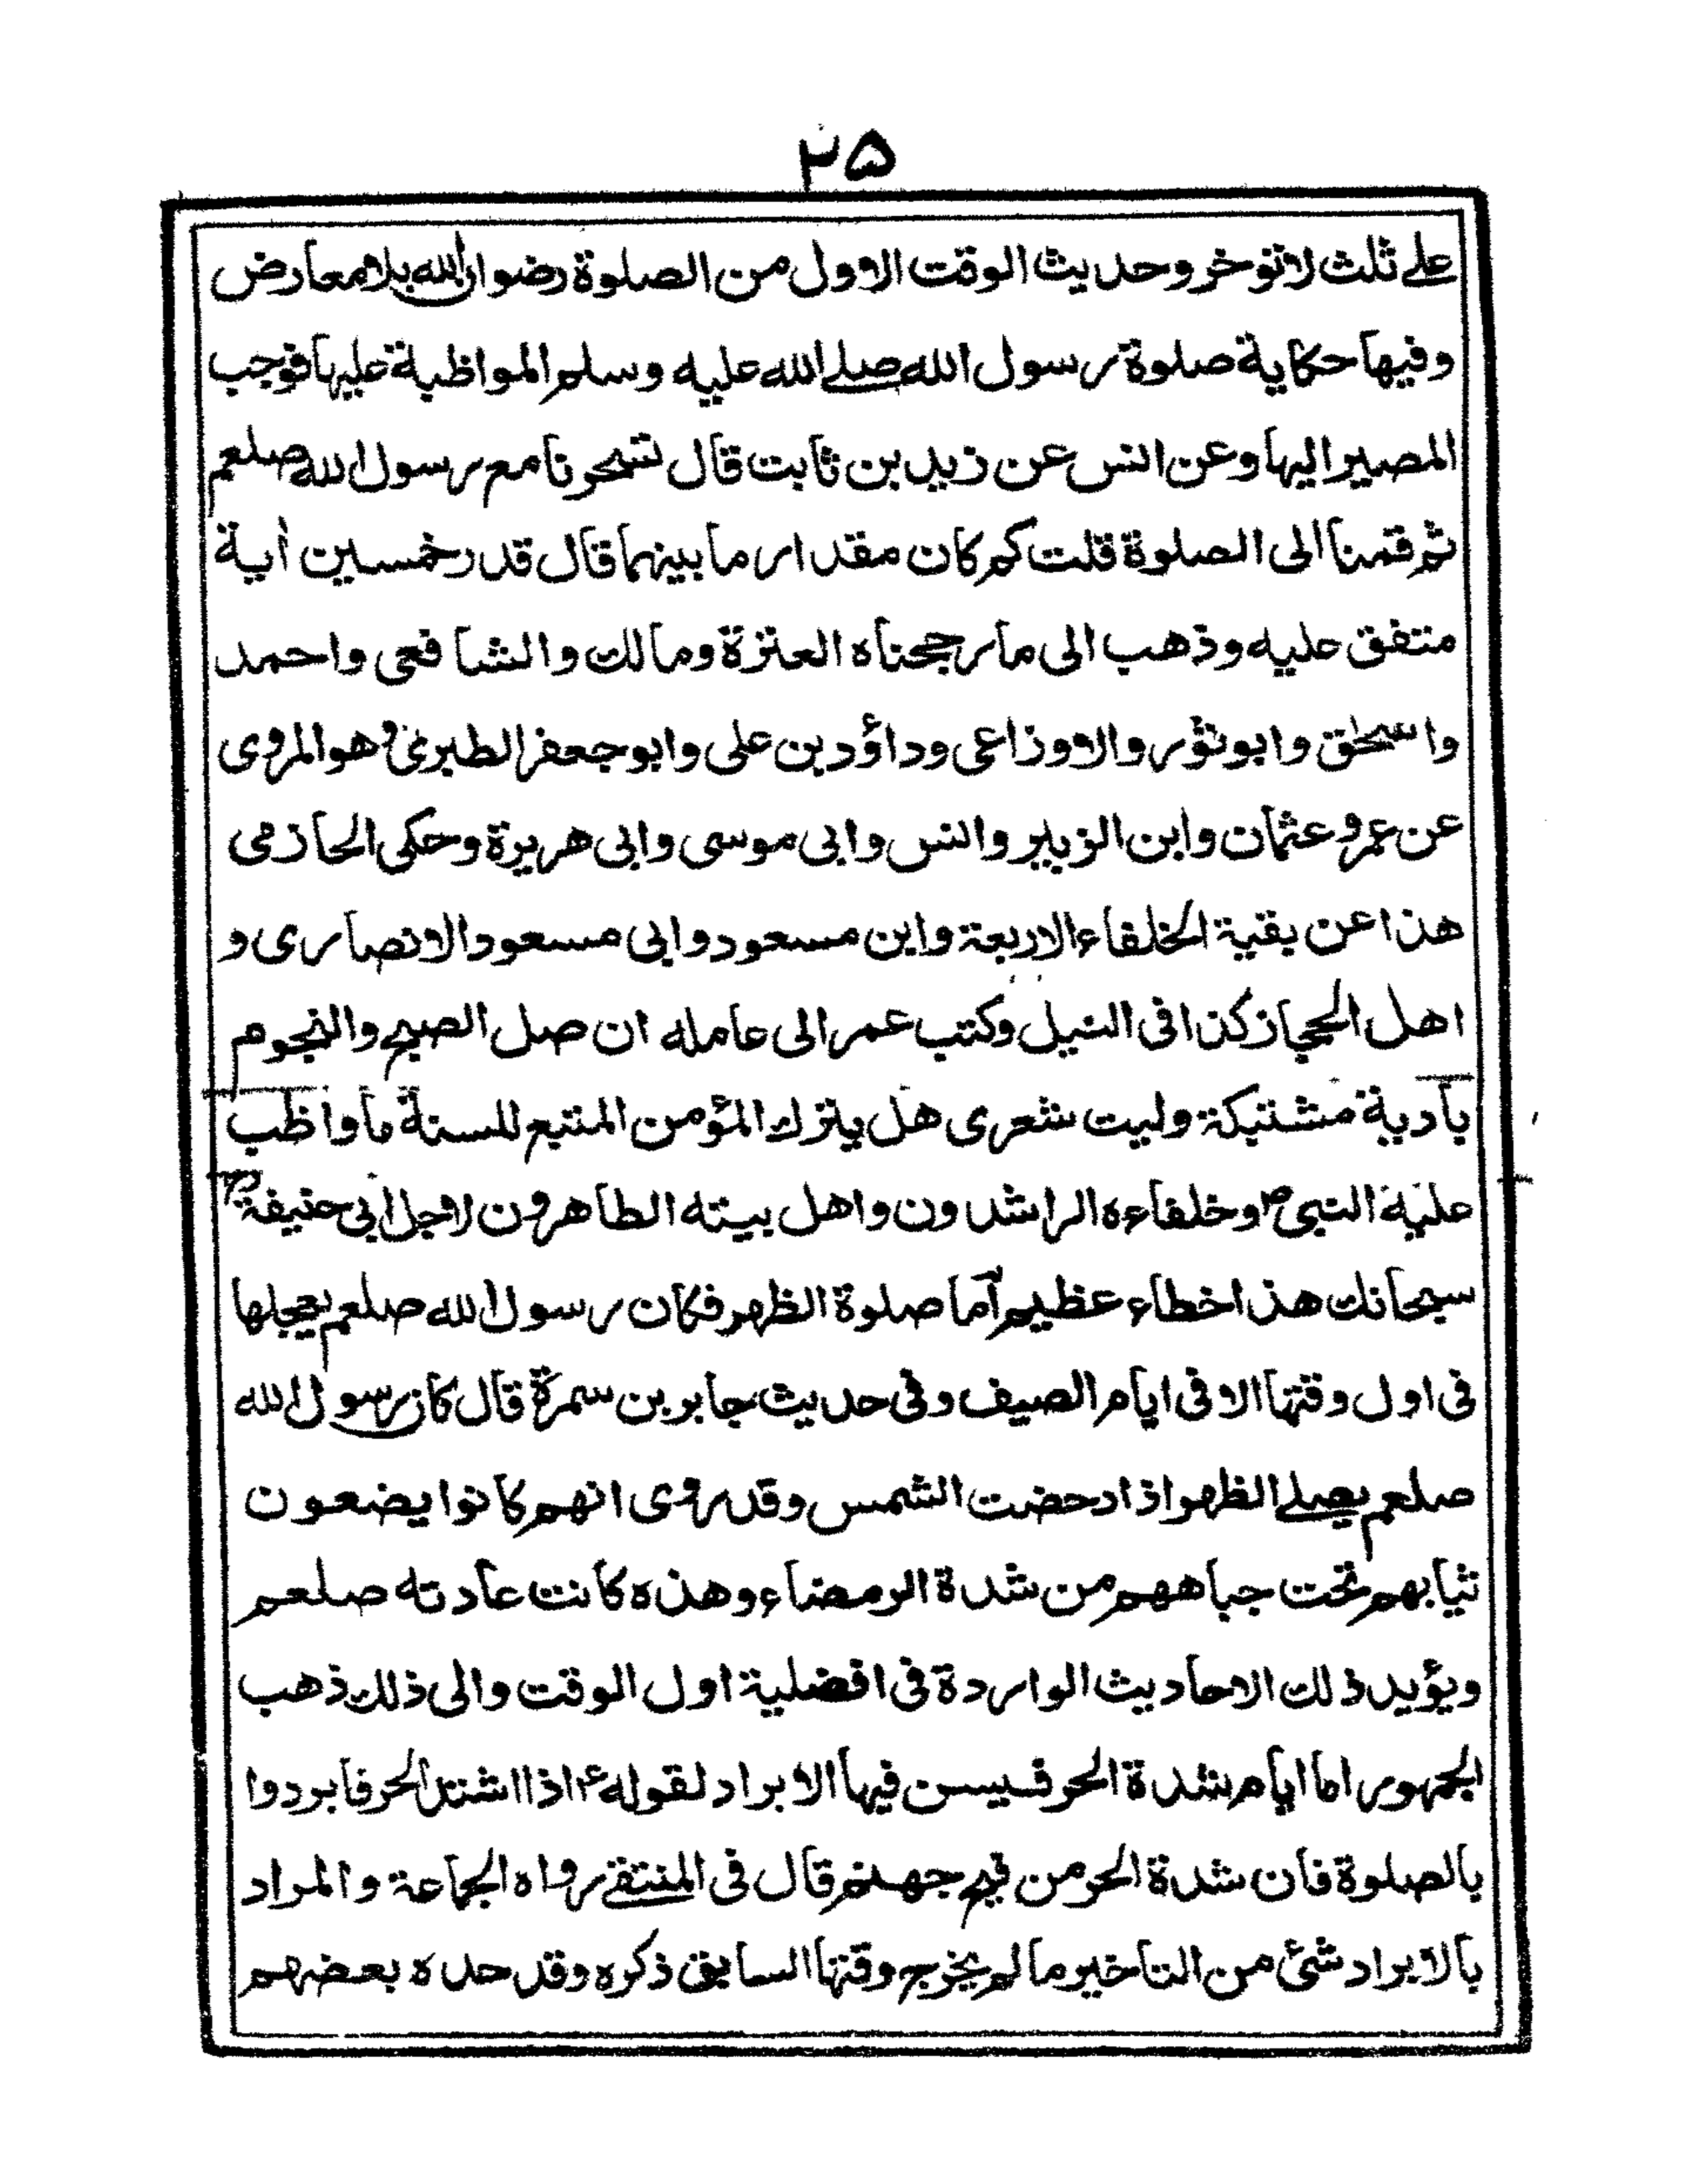 ٢٥
على ثلث لاتوخر وحديث الوقت الاول من الصلوة رضوان الله بلا معارض
وفيها حكاية صلوة رسول الله صلى الله عليه وسلم المواظبة عليها فوجب
المصير اليها وعن انس عن زيد بن ثابت قال تسحرنا مع رسول الله صلعم
ثم قمنا الى الصلوة قلت كم كان مقدار ما بينهما قال قدر خمسين أية
متفق عليه وذهب الى ما رجحناه العترة ومالك والشافعى واحمد
واسحق وابو ثور والاوزاعى وداؤد بن على وابو جعفر الطبرى وهو المروى
عن عمر وعثمان وابن الزبير وانس وابى موسى وابى هريرة وحكى الحازمى
هذا عن بقية الخلفاء الاربعة وابن مسعود وابى مسعود الانصارى و
اهل الحجاز كذا فى النيل وكتب عمر الى عامله ان صل الصبح والنجوم
بادية مشتبكة وليت شعرى هل يترك المؤمن المتبع للسنة ما واظب
عليه النبى ص وخلفاءه الراشدون واهل بيته الطاهرون لاجل ابى حنيفة
سبحانك هذا خطاء عظيم أما صلوة الظهر فكان رسول الله صلعم يعجلها
فى اول وقتها الا فى ايام الصيف وفى حديث جابر بن سمرة قال كان رسول الله
صلعم يصلى الظهر اذا دحضت الشمس وقد روى انهم كانوا يضعون
ثيابهم تحت جباههم من شدة الرمضاء وهذه كانت عادته صلعم
ويؤيد ذلك الاحاديث الواردة فى افضلية اول الوقت والى ذلك ذهب
الجمهور اما ايام شدة الحر فيسن فيها الابراد لقوله ع اذا اشتد الحر فابردوا
بالصلوة فان شدة الحر من فيح جهنم قال فى المنتقى رواه الجماعة والمراد
بالابراد شئ من التاخير ما لم يخرج وقتها السابق ذكره وقد حده بعضهم